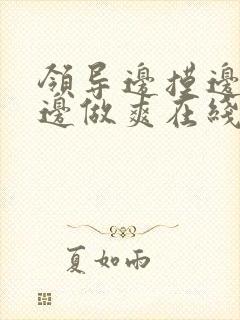 領导邊摸邊
邊做爽在綫
夏如雨